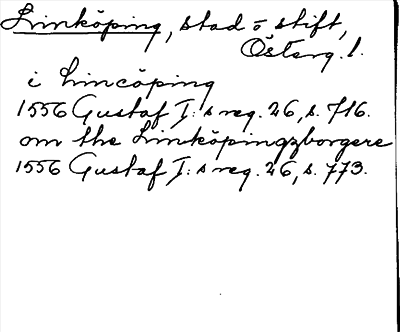 Linköping, stad o stift,
Österg. l.
i Lincöping
1556 Gustaf I: s reg. 26, s. 716.
om the Linköpingzborgere
1556 Gustaf I: s reg. 26, s. 773.